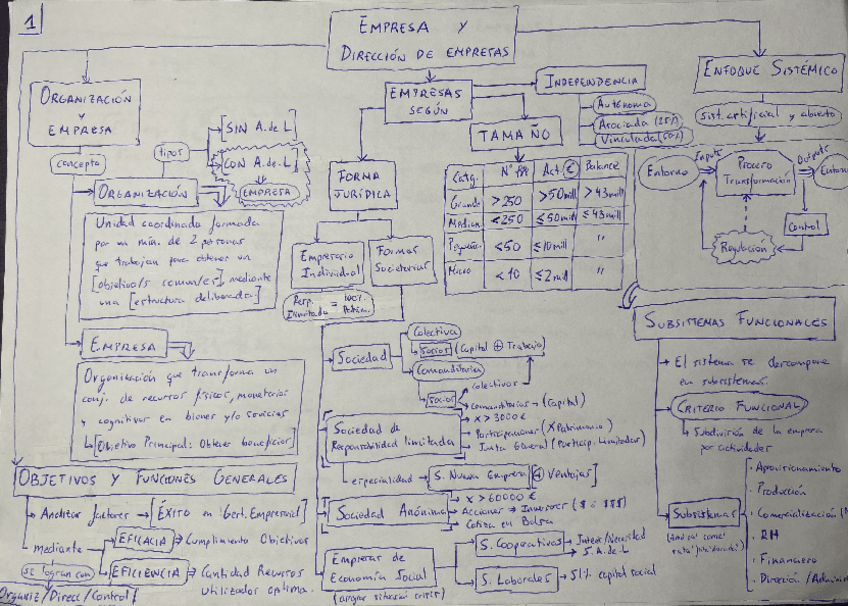 1
EMPRESA Y
DIRECCIÓN DE EMPRESAS
ORGANIZACIÓN
Y
EMPRESA
concepto
tipos
SIN A. de L
CON A. de L
EMPRESA
ORGANIZACIÓN
Unidad coordinada formada
por un mín. de 2 personas
que trabajan para obtener un
[objetivo/s comun/es] mediante
una [estructura deliberada]
EMPRESA
Organización que transforma un
conj. de recursos físicos, monetarios
y cognitivos en bienes y/o servicios
[Objetivo Principal: Obtener beneficios]
OBJETIVOS Y FUNCIONES GENERALES
Analizar factores → [ÉXITO en Gest. Empresarial]
mediante
EFICACIA → Cumplimiento Objetivos
EFICIENCIA → Cantidad Recursos
utilizados optima.
se logran con
Organiz/Direcc/Control
EMPRESAS
SEGÚN
INDEPENDENCIA
Autónoma
Asociada (25%)
Vinculada (50%)
TAMAÑO
Catg. Nº Act. € Balance
Grande >250 >50 mill >43 mill
Mediana <250 ≤50 mill ≤43 mill
Pequeña <50 ≤10 mill "
Micro <10 ≤2 mill "
FORMA
JURÍDICA
Empresario
Individual
Formas
Societarias
Resp. = 100%
Ilimitada
Sociedad
Colectiva
socios (Capital + Trabajo)
Comanditaria
socios
colectivos
comanditarios → (Capital)
Sociedad de
Responsabilidad limitada
x > 3000 €
Participaciones (x Patrimonio)
Junta General (Particip. Limitadas)
especialidad → S. Nueva Empresa [+ Ventajas]
Sociedad Anónima
x > 60000 €
Acciones → Inversor ($ ó $$$)
Cotiza en Bolsa
Empresas de
Economía Social
S. Cooperativas → Interés/Necesidad
S. A. de L
S. Laborales → 51% capital social
ENFOQUE SISTÉMICO
sist. artificial y abierto
Entorno
Inputs
Proceso
Transformación
Outputs
Entorno
Control
Regulación
SUBSISTEMAS FUNCIONALES
El sistema se descompone
en subsistemas.
CRITERIO FUNCIONAL
Subdivisión de la empresa
por actividades
Subsistemas
· Aprovisionamiento
· Producción
· Comercialización
· RH
· Financiero
· Dirección / Admin